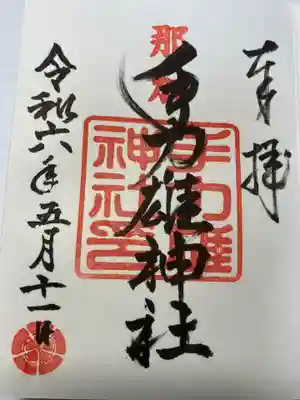 奉拝
手力雄神社
手力雄
神社印
令和六年五月十一日